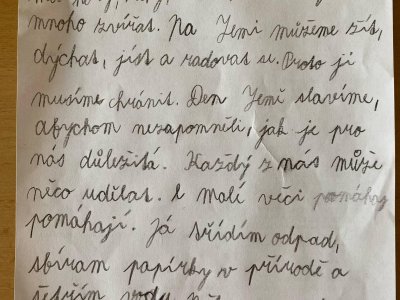 mnoho zvířat. Na Zemi můžeme žít,
dýchat, jíst a radovat se. Proto ji
musíme chránit. Den Země slavíme,
abychom nezapomněli, jak je pro
nás důležitá. Každý z nás může
něco udělat. I malé věci pomáhy
pomáhají. Já třídím odpad,
sbíram papírky v přírodě a
šetřím vodu